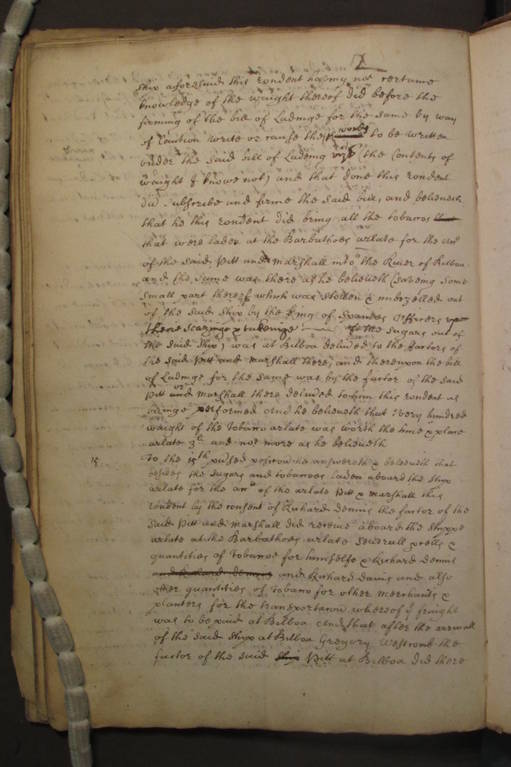 ship aforesaid this rendent having not certaine
knowledge of the waight thereof did before the
firming of the bill of Ladinge for the same by way
of Caution write or cause these words to be written
under the said bill of Ladeing vizt (the Contents of
waight I knowe not) and that done this rendent
did subscribe and firme the said bill, and beleeveth
that he this rendent did bring all the tobaccos
that were laden at the Barbathoes arlate for the
of the said Pitt and Marshall into the River of Bilboa
and the same was there as he beleeveth (saveing some
small part thereof which was stollen & imbezelled out
of the said Ship by the King of Spaines Officers
the sugars out of
the said Ship) was at Bilboa delivered to the factors of
the said Pitt and Marshall there, and thereupon the bill
of Ladinge for the same was by the factor of the said
Pitt and Marshall there delivered to him this rendent as
beinge performed And he beleeveth that every hundred
waight of the tobacco arlate was worth the time & place
arlate and not more as he beleeveth
15 To the 15th position he answereth & beleeveth that
besides the sugars and tobaccoes laden aboard the ship
arlate for the of the arlate Pitt & Marshall this
rendent by the consent of Richard Dennis the factor of the
said Pitt and Marshall did receive aboard the shippe
arlate at the Barbathoes arlate severall &
quantities of tobaccoe for himselfe & Richard Dennis
and Richard Davis and also
other quantities of tobacco for other merchants &
planters for the transportation whereof freight
was to be paid at Bilboa And that after the arrivall
of the said shipp at Bilboa Gregory Westcomb the
factor of the said Pitt at Bilboa did there